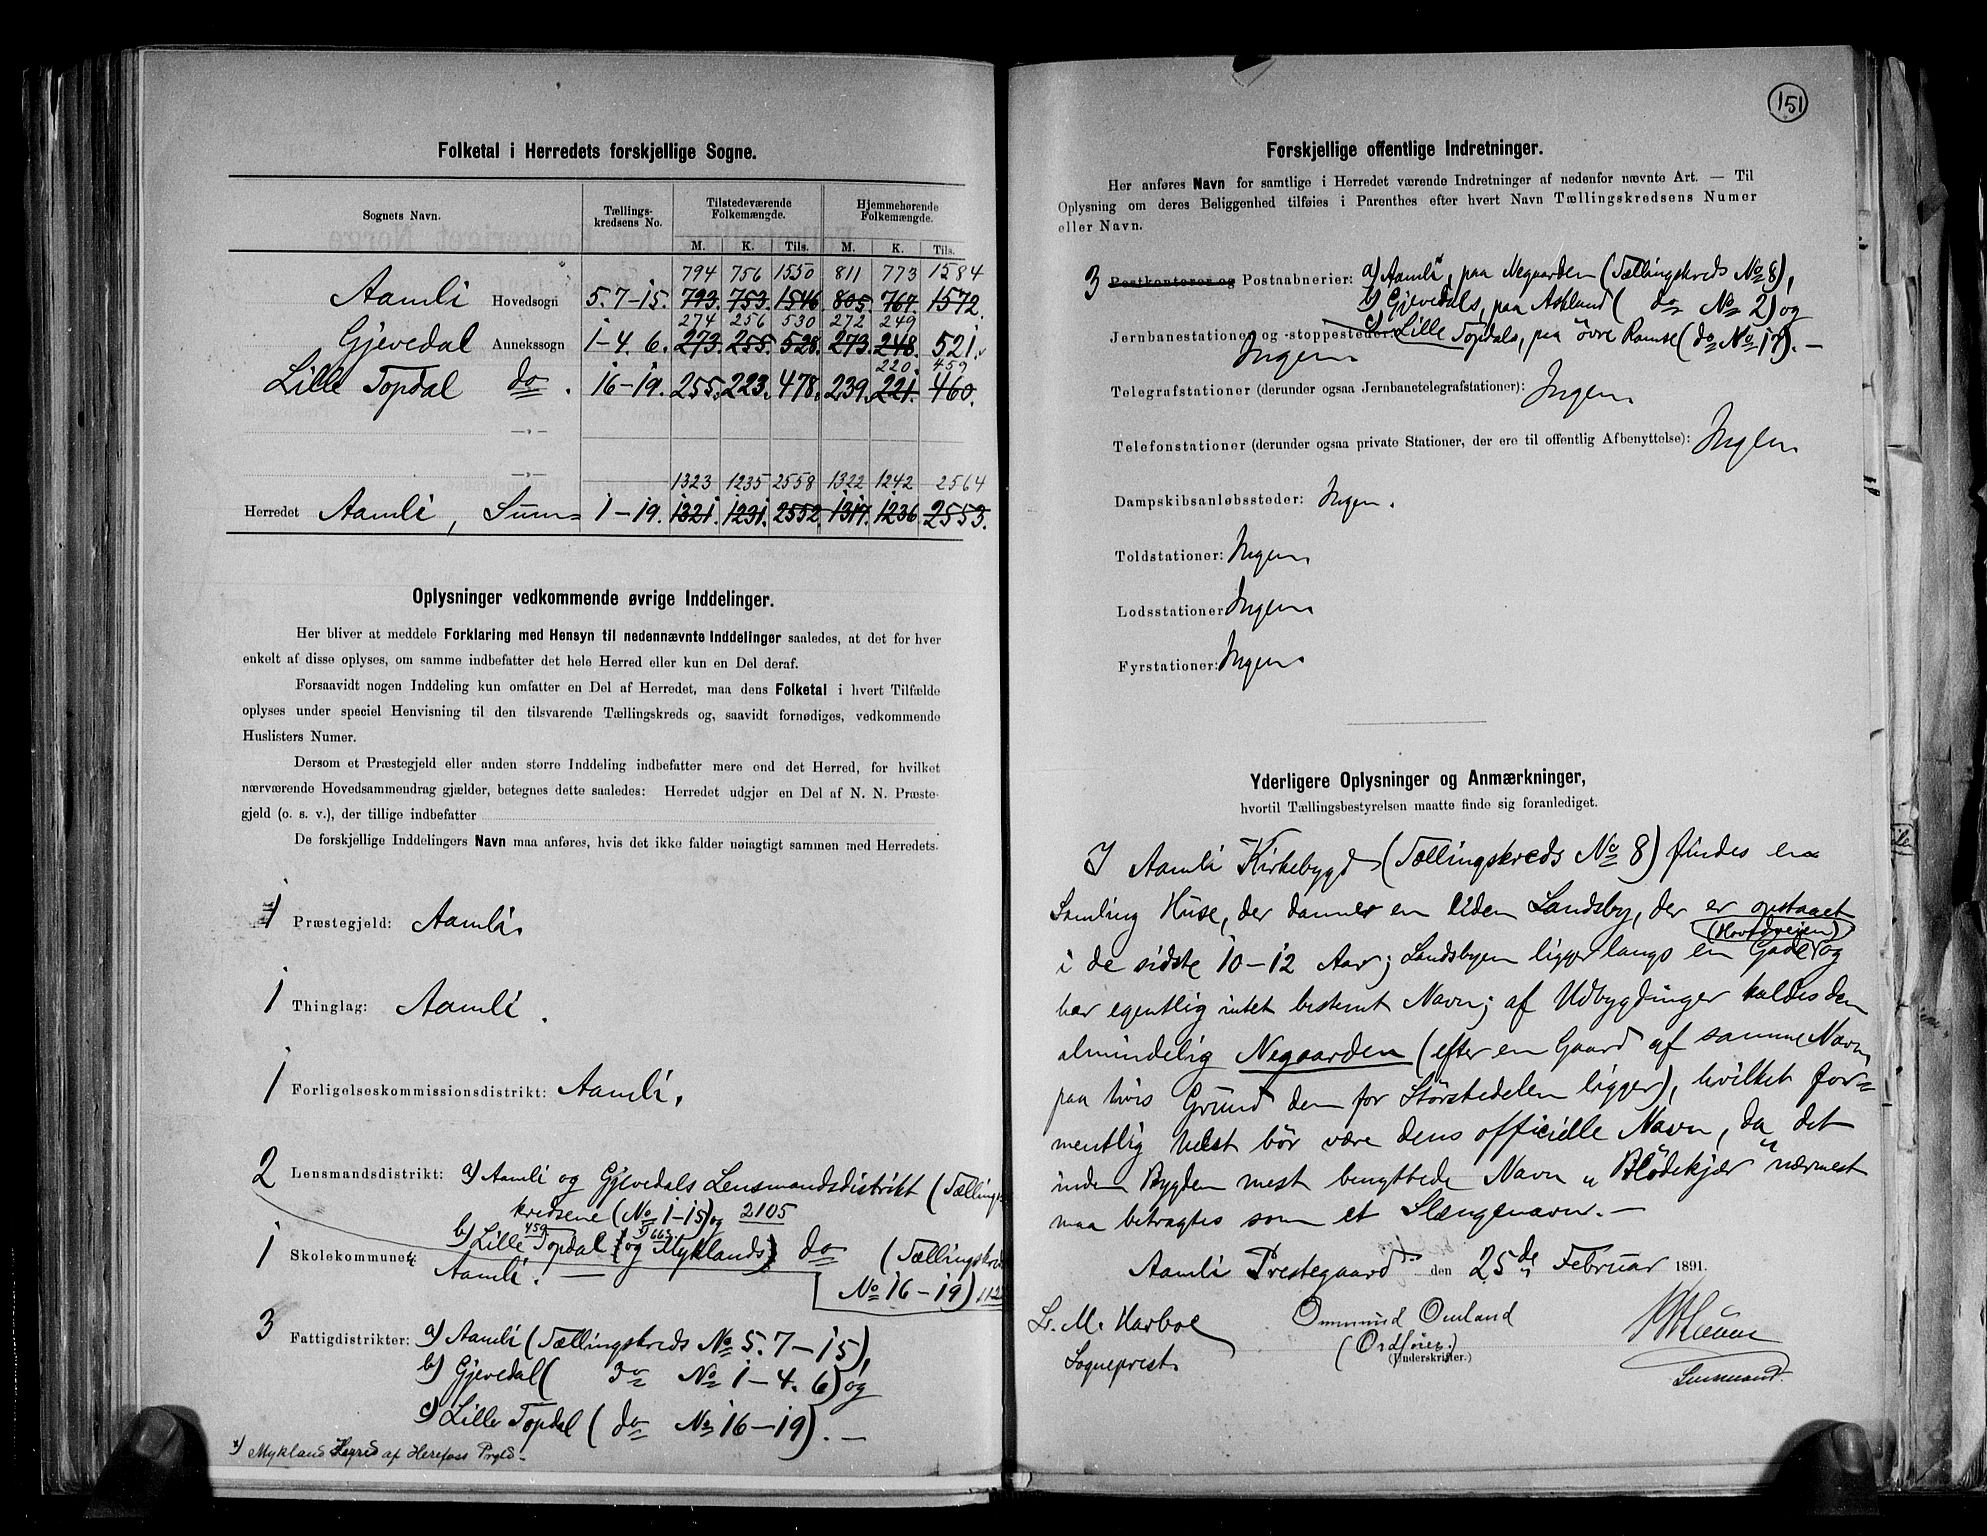 Folketal i Herredets forskjellige Sogne.
Sognets Navn. Tællings-kredsens No. Tilstedeværende Folkemængde. Hjemmehørende Folkemængde.
M. K. Tils. M. K. Tils.
794 756 1550 811 773 1584
Aamli Hovedsogn 5. 7-15. 793. 753. 1546 805. 767. 1572.
274 256 530 272 249
Gjevedal Annekssogn 1-4. 6. 273. 255. 528. 273. 248. 521.
220. 459
Lille Topdal do. 16-19. 255. 223. 478. 239. 221. 460.
1323 1235 2558 1322 1242 2564
Herredet Aamli, Sum= 1-19. 1321. 1231. 2552. 1317. 1236 2553.
Oplysninger vedkommende øvrige Inddelinger.
Her bliver at meddele Forklaring med Hensyn til nedennævnte Inddelinger saaledes, at det for hver
enkelt af disse oplyses, om samme indbefatter det hele Herred eller kun en Del deraf.
Forsaavidt nogen Inddeling kun omfatter en Del af Herredet, maa dens Folketal i hvert Tilfælde
oplyses under speciel Henvisning til den tilsvarende Tællingskreds og, saavidt fornødiges, vedkommende
Huslisters Numer.
Dersom et Præstegjeld eller anden større Inddeling indbefatter mere end det Herred, for hvilket
nærværende Hovedsammendrag gjælder, betegnes dette saaledes: Herredet udgjør en Del af N. N. Præste-
gjeld (o. s. v.), der tillige indbefatter
De forskjellige Inddelingers Navn maa anføres, hvis det ikke falder nøiagtigt sammen med Herredets.
1 Præstegjeld: Aamli.
1 Thinglag: Aamli.
1 Forligelseskommissionsdistrikt: Aamli.
2 Lensmandsdistrikt: a) Aamli og Gjevedals Lensmandsdistrikt (Tællings-
kredsene (No 1-15) og 2105
459 663
b) Lille Topdal (og Myklands) do (Tællingskreds
1 Skolekommune: Aamli. —
No 16-19)
3 Fattigdistrikter: a) Aamli (Tællingskreds No 5. 7-15),
b) Gjevedal ( do No 1-4. 6) og
c) Lille Topdal ( do No 16-19). —
*) Mykland Herred af Herefoss Prgld.
151
Forskjellige offentlige Indretninger.
Her anføres Navn for samtlige i Herredet værende Indretninger af nedenfor nævnte Art. — Til
Oplysning om deres Beliggenhed tilføies i Parenthes efter hvert Navn Tællingskredsens Numer
eller Navn.
3 Postkontorer og Postaabnerier: a) Aamli, paa Negaarden (Tællingskreds No 8),
b) Gjevedals, paa Askland ( do No 2) og
c) Lille Topdals, paa øvre Ramse (do No 17). —
Jernbanestationer og -stoppesteder:
Ingen
Telegrafstationer (derunder ogsaa Jernbanetelegrafstationer): Ingen.
Telefonstationer (derunder ogsaa private Stationer, der ere til offentlig Afbenyttelse): Ingen.
Dampskibsanløbssteder: Ingen.
Toldstationer: Ingen.
Lodsstationer Ingen.
Fyrstationer: Ingen.
Yderligere Oplysninger og Anmærkninger,
hvortil Tællingsbestyrelsen maatte finde sig foranlediget.
I Aamli Kirkebygd (Tællingskreds No 8) findes en
Samling Huse, der danner en liden Landsby, der er opstaaet
(Hovedveien)
i de sidste 10-12 Aar; Landsbyen ligger langs en Gade og
har egentlig intet bestemt Navn; af Udbygdinger kaldes den
almindelig Negaarden (efter en Gaard af samme Navn,
paa hvis Grund den for Störstedelen ligger), hvilket for=
mentlig helst bör være dens officielle Navn, da det
inden Bygden mest benyttede Navn „Blödekjær" nærmest
maa betragtes som et Slængenavn. —
Aamli Prestegaard den 25de Februar 1891.
Lr. M. Harboe
Sogneprest.
Ommund Omland
(Ordförer.)
(Underskrifter.)
Lensmand.